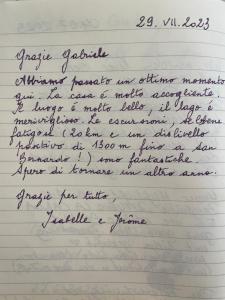 29.VII.2023
Grazie Gabriele
Abbiamo passato un ottimo momento
qui. La casa é molto accogliente.
Il luogo é molto bello, il lago é
meriviglioso. Le escursioni, sebbene
fatigose (20km e un dislivello
positivo di 1300m fino a san
Bernardo!) sono fantastiche.
Spero di tornare un altro anno.
Grazie per tutto,
Isabelle e Jérôme